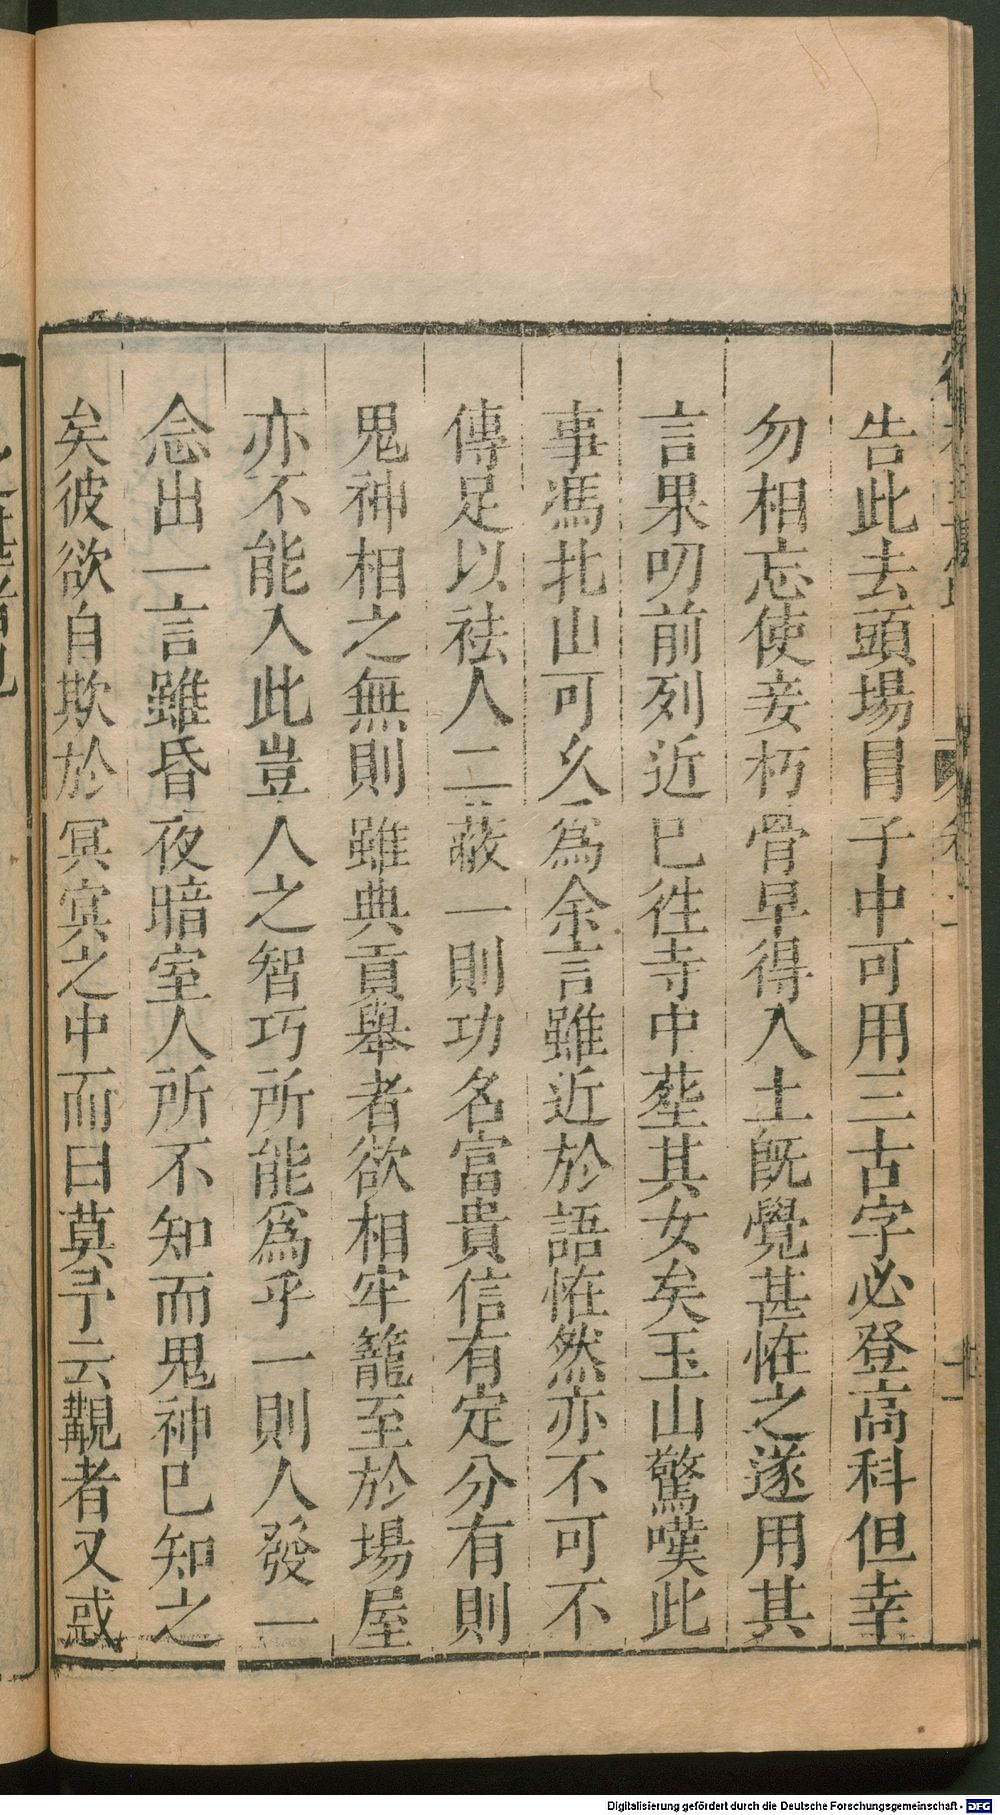 告此去頭場目子中可用三古字必登高科但幸
勿相忘使妾朽骨早得入土旣覺甚恠之遂用其
言果叨前列近已徃寺中塟其女矣玉山驚嘆此
事馮北山可久爲余言雖近於語恠然亦不可不
傳足以祛人二蔽一則功名富貴信有定分有則
鬼神相之無則雖典貢舉者欲相牢籠至於場屋
亦不能入此豈人之智巧所能爲乎一則人發一
念出一言雖昏夜暗室人所不知而鬼神已知之
矣彼欲自欺於冥冥之中而曰莫予云覯者又惑
Digitalisierung gefördert durch die Deutsche Forschungsgemeinschaft - DFG